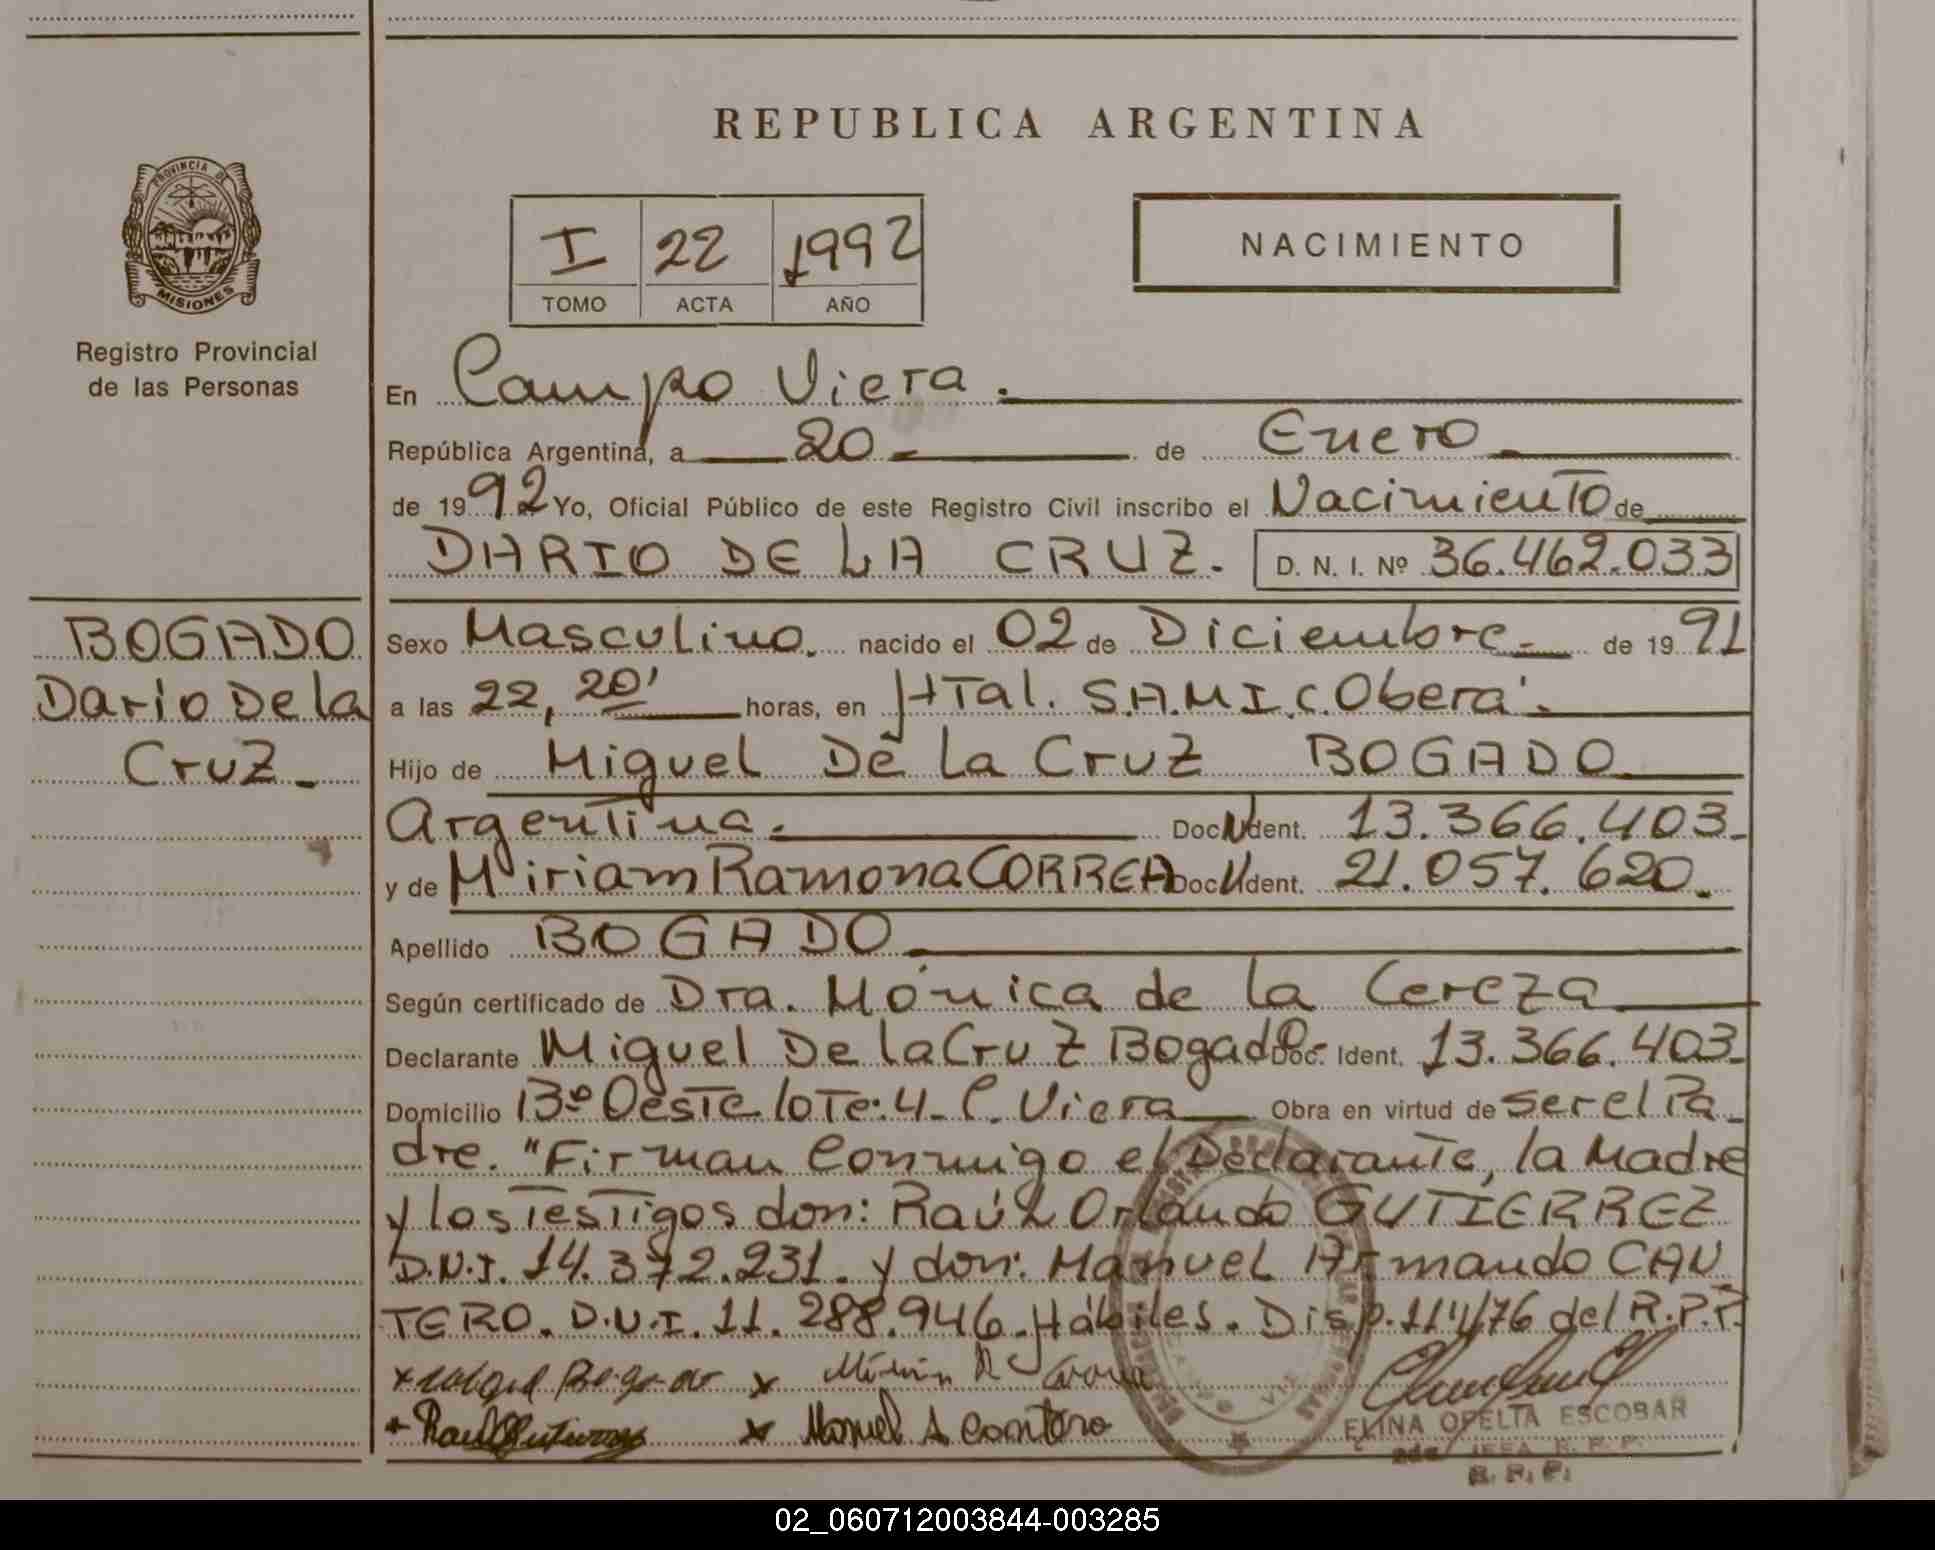 REPUBLICA ARGENTINA
PROVINCIA DE
MISIONES
Registro Provincial
de las Personas
I 22 1992
TOMO ACTA AÑO
NACIMIENTO
En Campo Viera.
República Argentina, a 20 de Enero
de 1992 Yo, Oficial Público de este Registro Civil inscribo el Nacimiento de
DARIO DE LA CRUZ. D. N. I. Nº 36.462.033
BOGADO
Dario De la
Cruz
Sexo Masculino. nacido el 02 de Diciembre de 1991
a las 22, 20' horas, en HTal. S.A.M.I.C. Oberá.
Hijo de Miguel De la Cruz BOGADO
Argentina. Doc N Ident. 13.366.403.
y de Miriam Ramona CORREA Doc N Ident. 21.057.620.
Apellido BOGADO
Según certificado de Dra. Mónica de la Cereza
Declarante Miguel De la Cruz Bogado Doc. Ident. 13.366.403.
Domicilio 13º Oeste lote:4- C. Viera Obra en virtud de ser el Pa-
dre. "Firman Conmigo el Declarante, la Madre
y los Testigos don: Raúl Orlando GUTIERREZ
D.N.I. 14.372.231. y don: Manuel Armando CAN
TERO. D.N.I. 11.288.946. Hábiles. Disp. 114/76 del R.P.P.
Manuel A Cantero
ELINA OFELIA ESCOBAR
R. P. P.
02_060712003844-003285